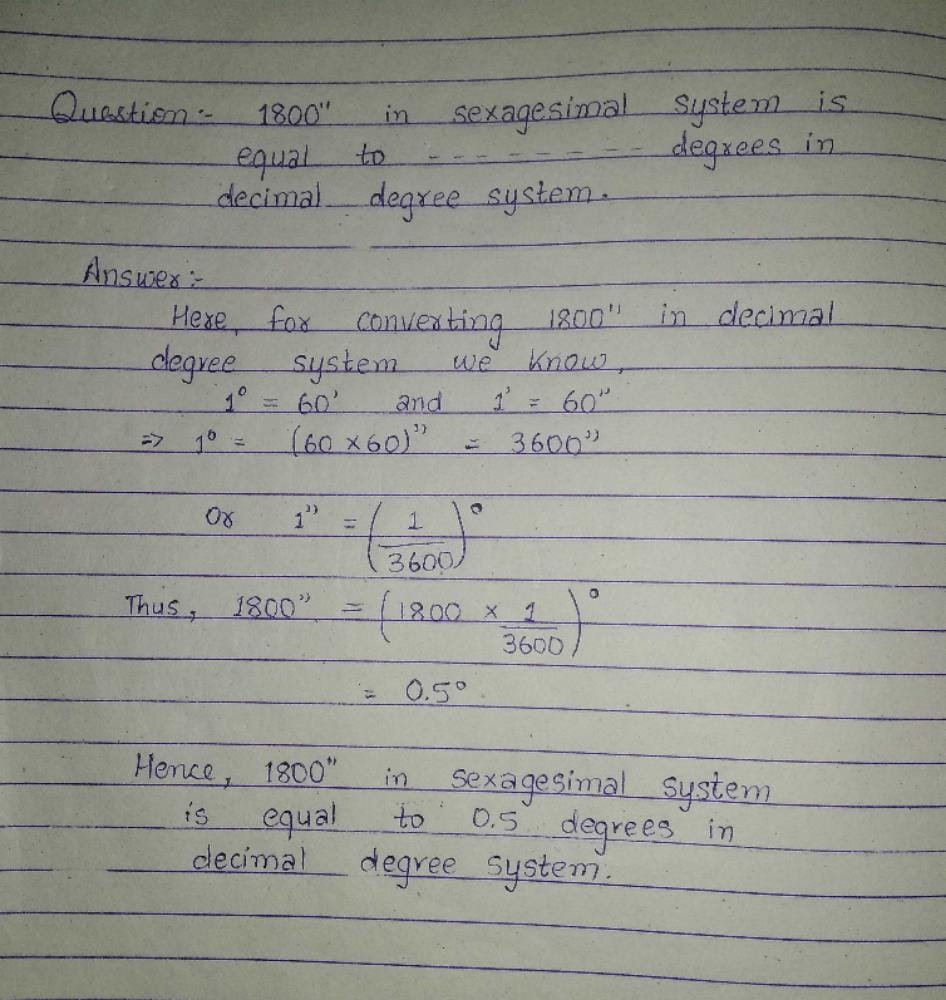 Question:- 1800" in sexagesimal system is
equal to --------- degrees in
decimal degree system.
Answer:-
Here, for converting 1800" in decimal
degree system we know,
1° = 60' and 1' = 60"
=> 1° = (60 × 60)" = 3600"
Or 1" = (1/3600)°
Thus, 1800" = (1800 × 1/3600)°
= 0.5°
Hence, 1800" in sexagesimal system
is equal to 0.5 degrees in
decimal degree system.